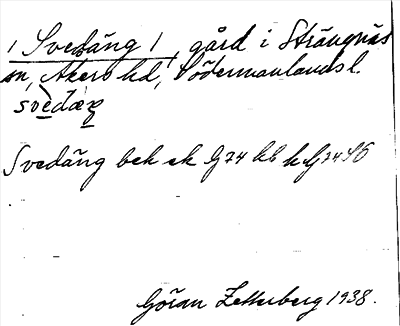 / Svedäng /, gård i Strängnäs
sn, Åkers hd, Södermanlands l.
svèdæŋ
Svedäng bek ek G 74 hb h G 74 SO
Göran Zetterberg 1938.